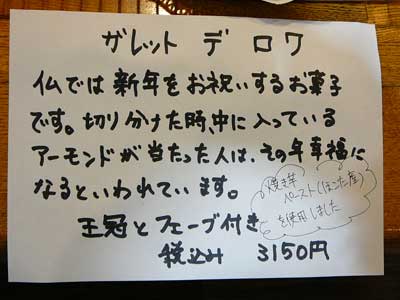 ガレット デ ロワ
仏では新年をお祝いするお菓子
です。切り分けた時、中に入っている
アーモンドが当たった人は、その年幸福に
なるといわれています。
焼き芋
ペースト(ほこた産)
を使用しました
王冠とフェーブ付き
税込み 3150円